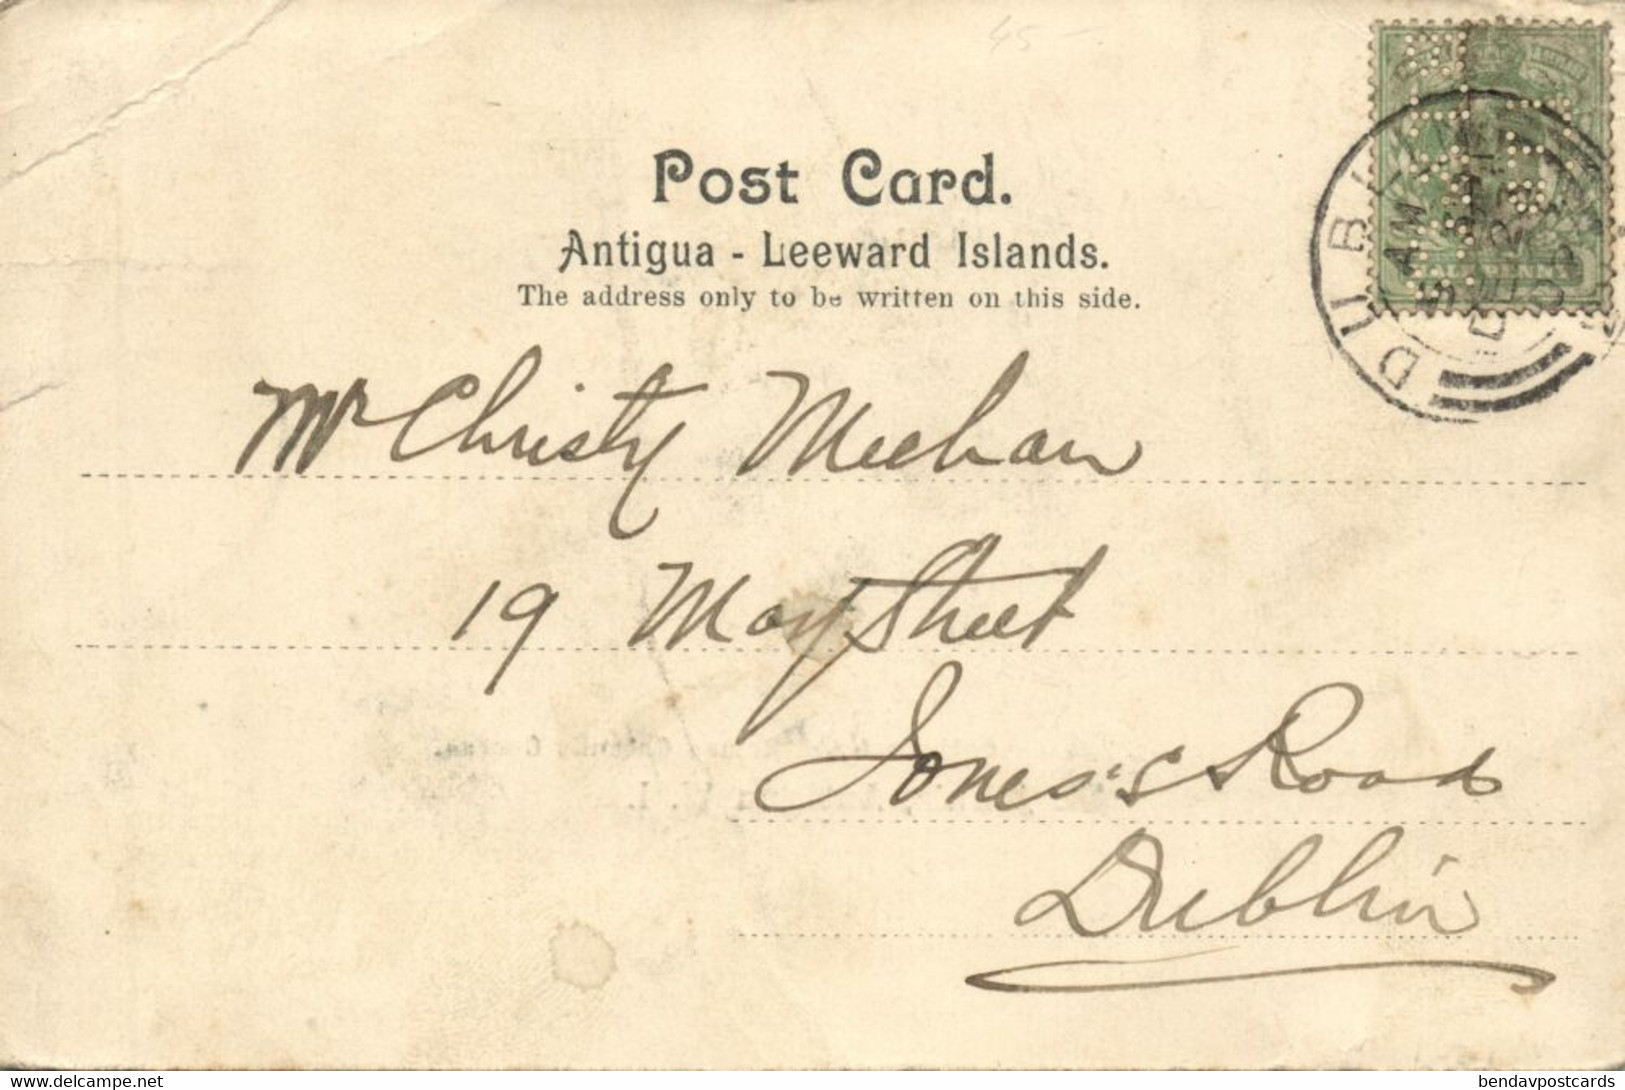 45 -
Post Card.
Antigua - Leeward Islands.
The address only to be written on this side.
DUBLIN
Mr Christy Meehan
19 May Street
Jones's Road
Dublin
www.delcampe.net
bendavpostcards